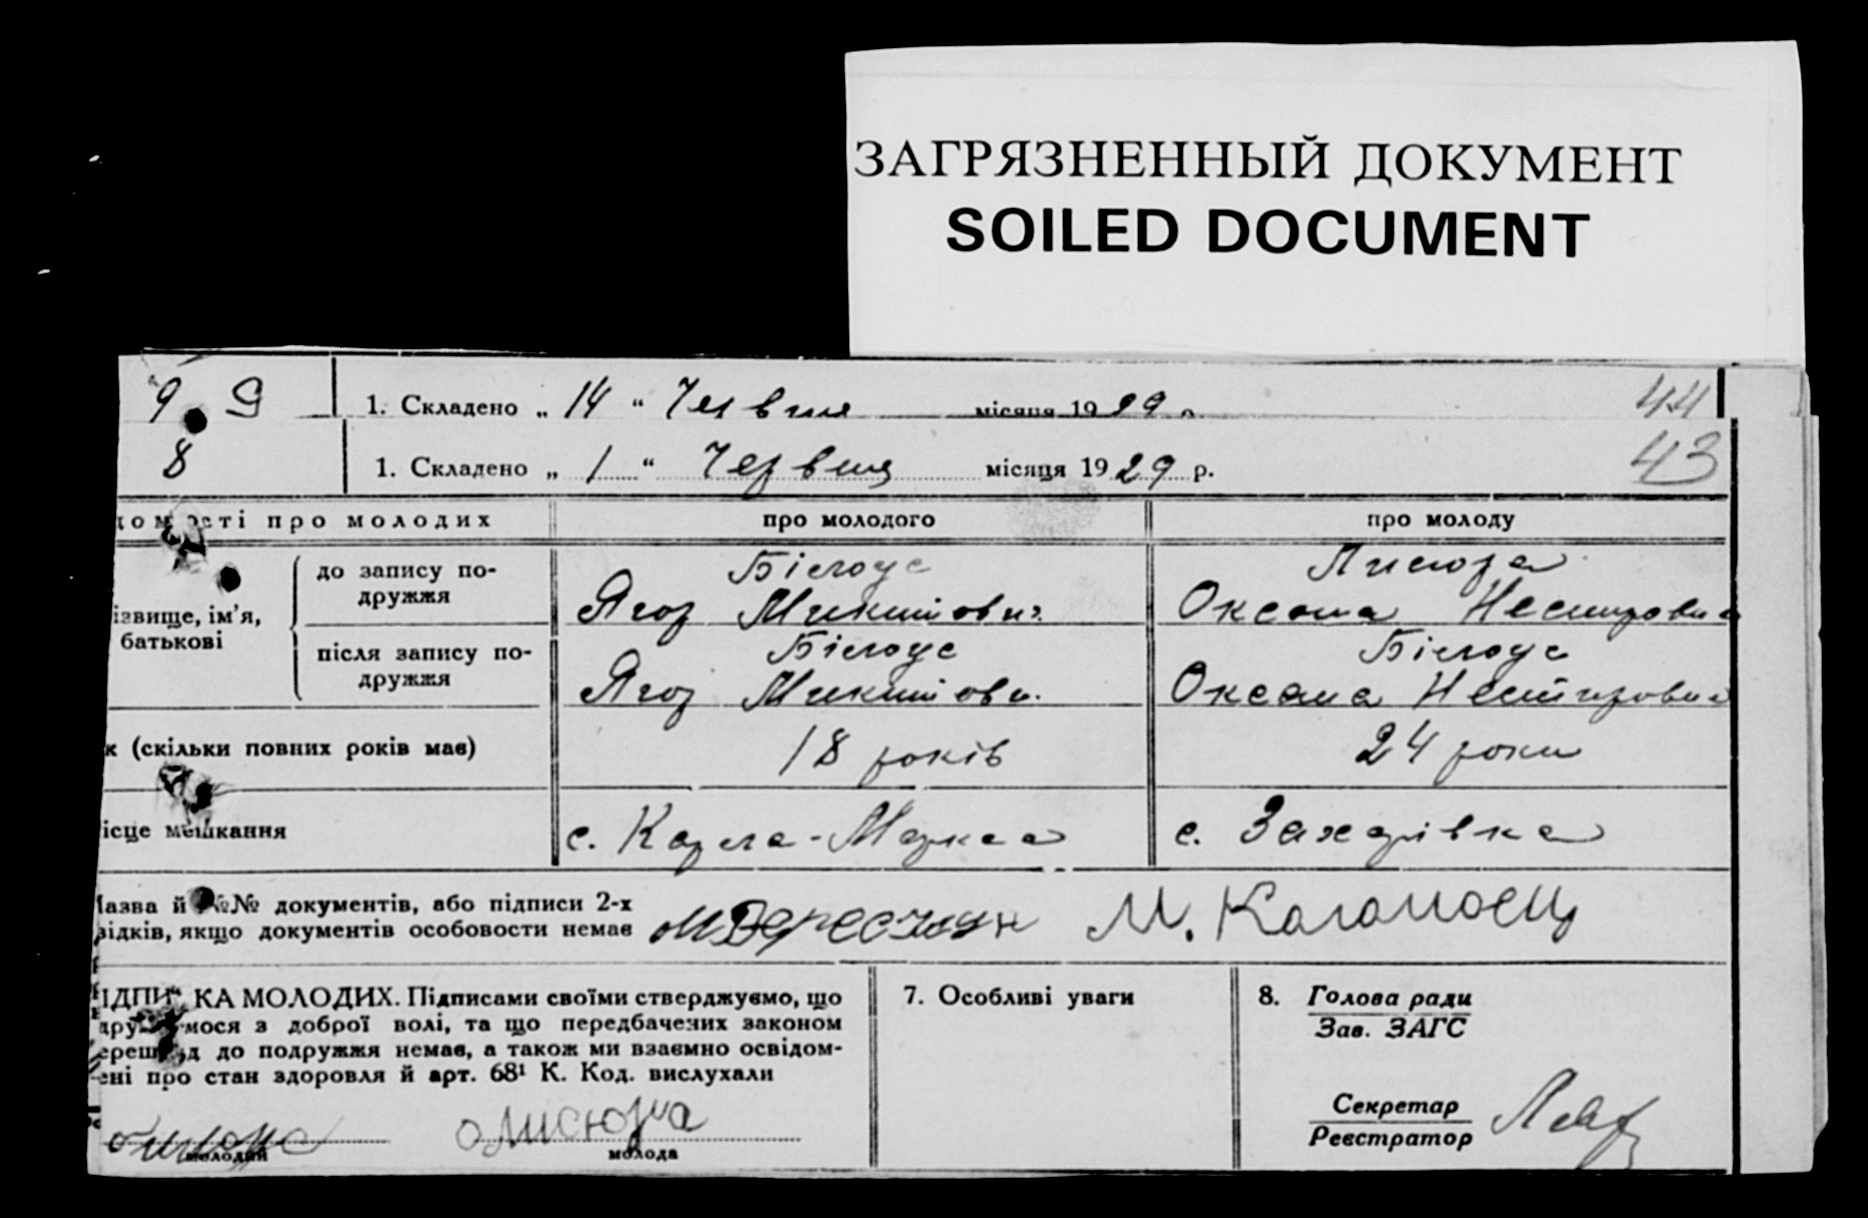 ЗАГРЯЗНЕННЫЙ ДОКУМЕНТ
SOILED DOCUMENT
9 1. Складено „ 14 “ Червня місяця 1929 р. 44
8 1. Складено „ 1 “ Червня місяця 1929 р. 43
домості про молодих про молодого про молоду
ізвище, ім’я,
батькові
до запису по-
дружжя
Білоус
Ягор Микитови
Лисюра
Оксана Нестировна
після запису по-
дружжя
Білоус
Ягор Микитови.
Білоус
Оксана Нестировна
к (скільки повних років має) 18 років 24 роки
ісце мешкання с. Карла-Маркса с. Захарівка
азва й №№ документів, або підписи 2-х
відків, якщо документів особовости немає
М. Каломоец
ІДПИСКА МОЛОДИХ. Підписами своїми стверджуємо, що
дружимося з доброї волі, та що передбачених законом
ерешкод до подружжя немає, а також ми взаємно освідом-
ені про стан здоровля й арт. 68¹ К. Код. вислухали
олисюра
молодий молода
7. Особливі уваги
8. Голова ради
Зав. ЗАГС
Секретар
Реєстратор